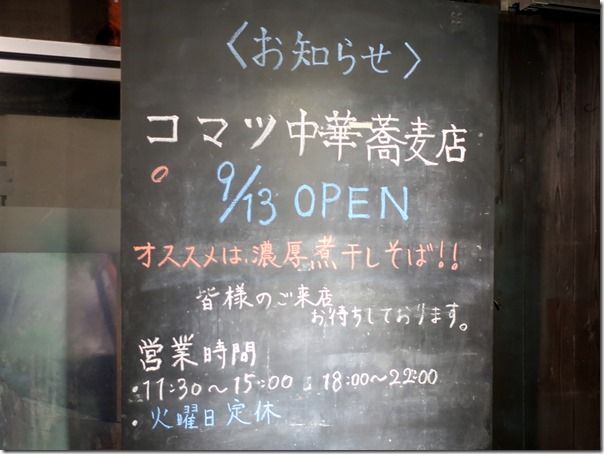 〈お知らせ〉
コマツ中華蕎麦店
9/13 OPEN
オススメは、濃厚煮干しそば!!
皆様のご来店
お待ちしております。
営業時間
・11:30〜15:00 : 18:00〜22:00
・火曜日定休